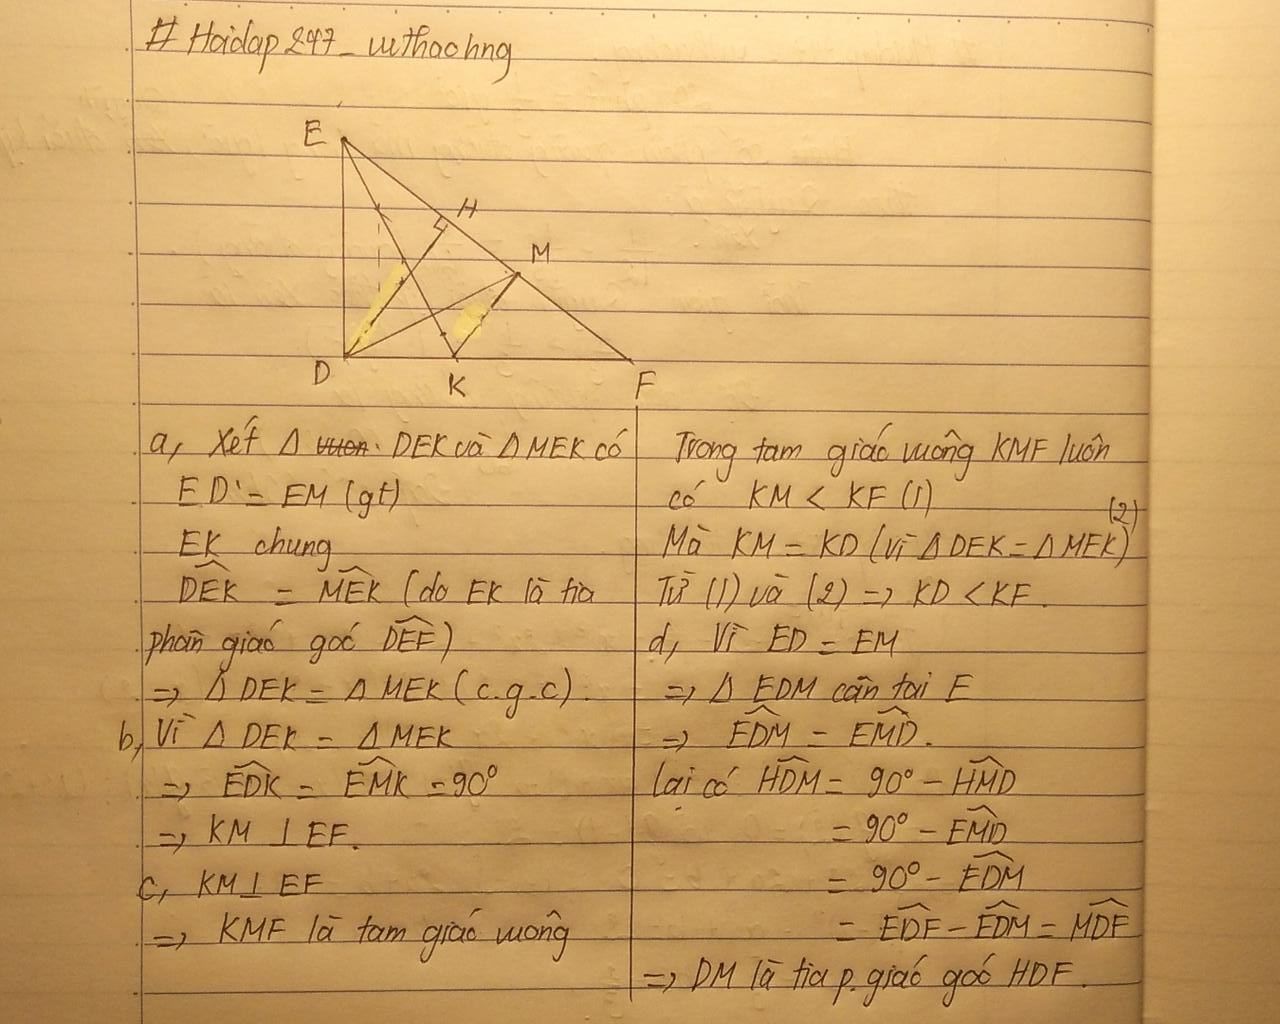 # Hoidap247_vuthaohng
E
H
M
D
K
F
a, Xét Δ DEK và Δ MEK có
ED = EM (gt)
EK chung
DEK̂ = MEK̂ (do EK là tia
phân giác góc DEF̂)
=> Δ DEK = Δ MEK (c.g.c).
b, Vì Δ DEK = Δ MEK
=> EDK̂ = EMK̂ = 90°
=> KM ⊥ EF.
c, KM ⊥ EF
=> KMF là tam giác vuông
Trong tam giác vuông KMF luôn
có KM < KF (1)
Mà KM = KD (vì Δ DEK = Δ MEK) (2)
Từ (1) và (2) => KD < KF.
d, Vì ED = EM
=> Δ EDM cân tại E
=> EDM̂ = EMD̂.
Lại có HDM̂ = 90° - HMD̂
= 90° - EMD̂
= 90° - EDM̂
= EDF̂ - EDM̂ = MDF̂
=> DM là tia p.giác góc HDF.